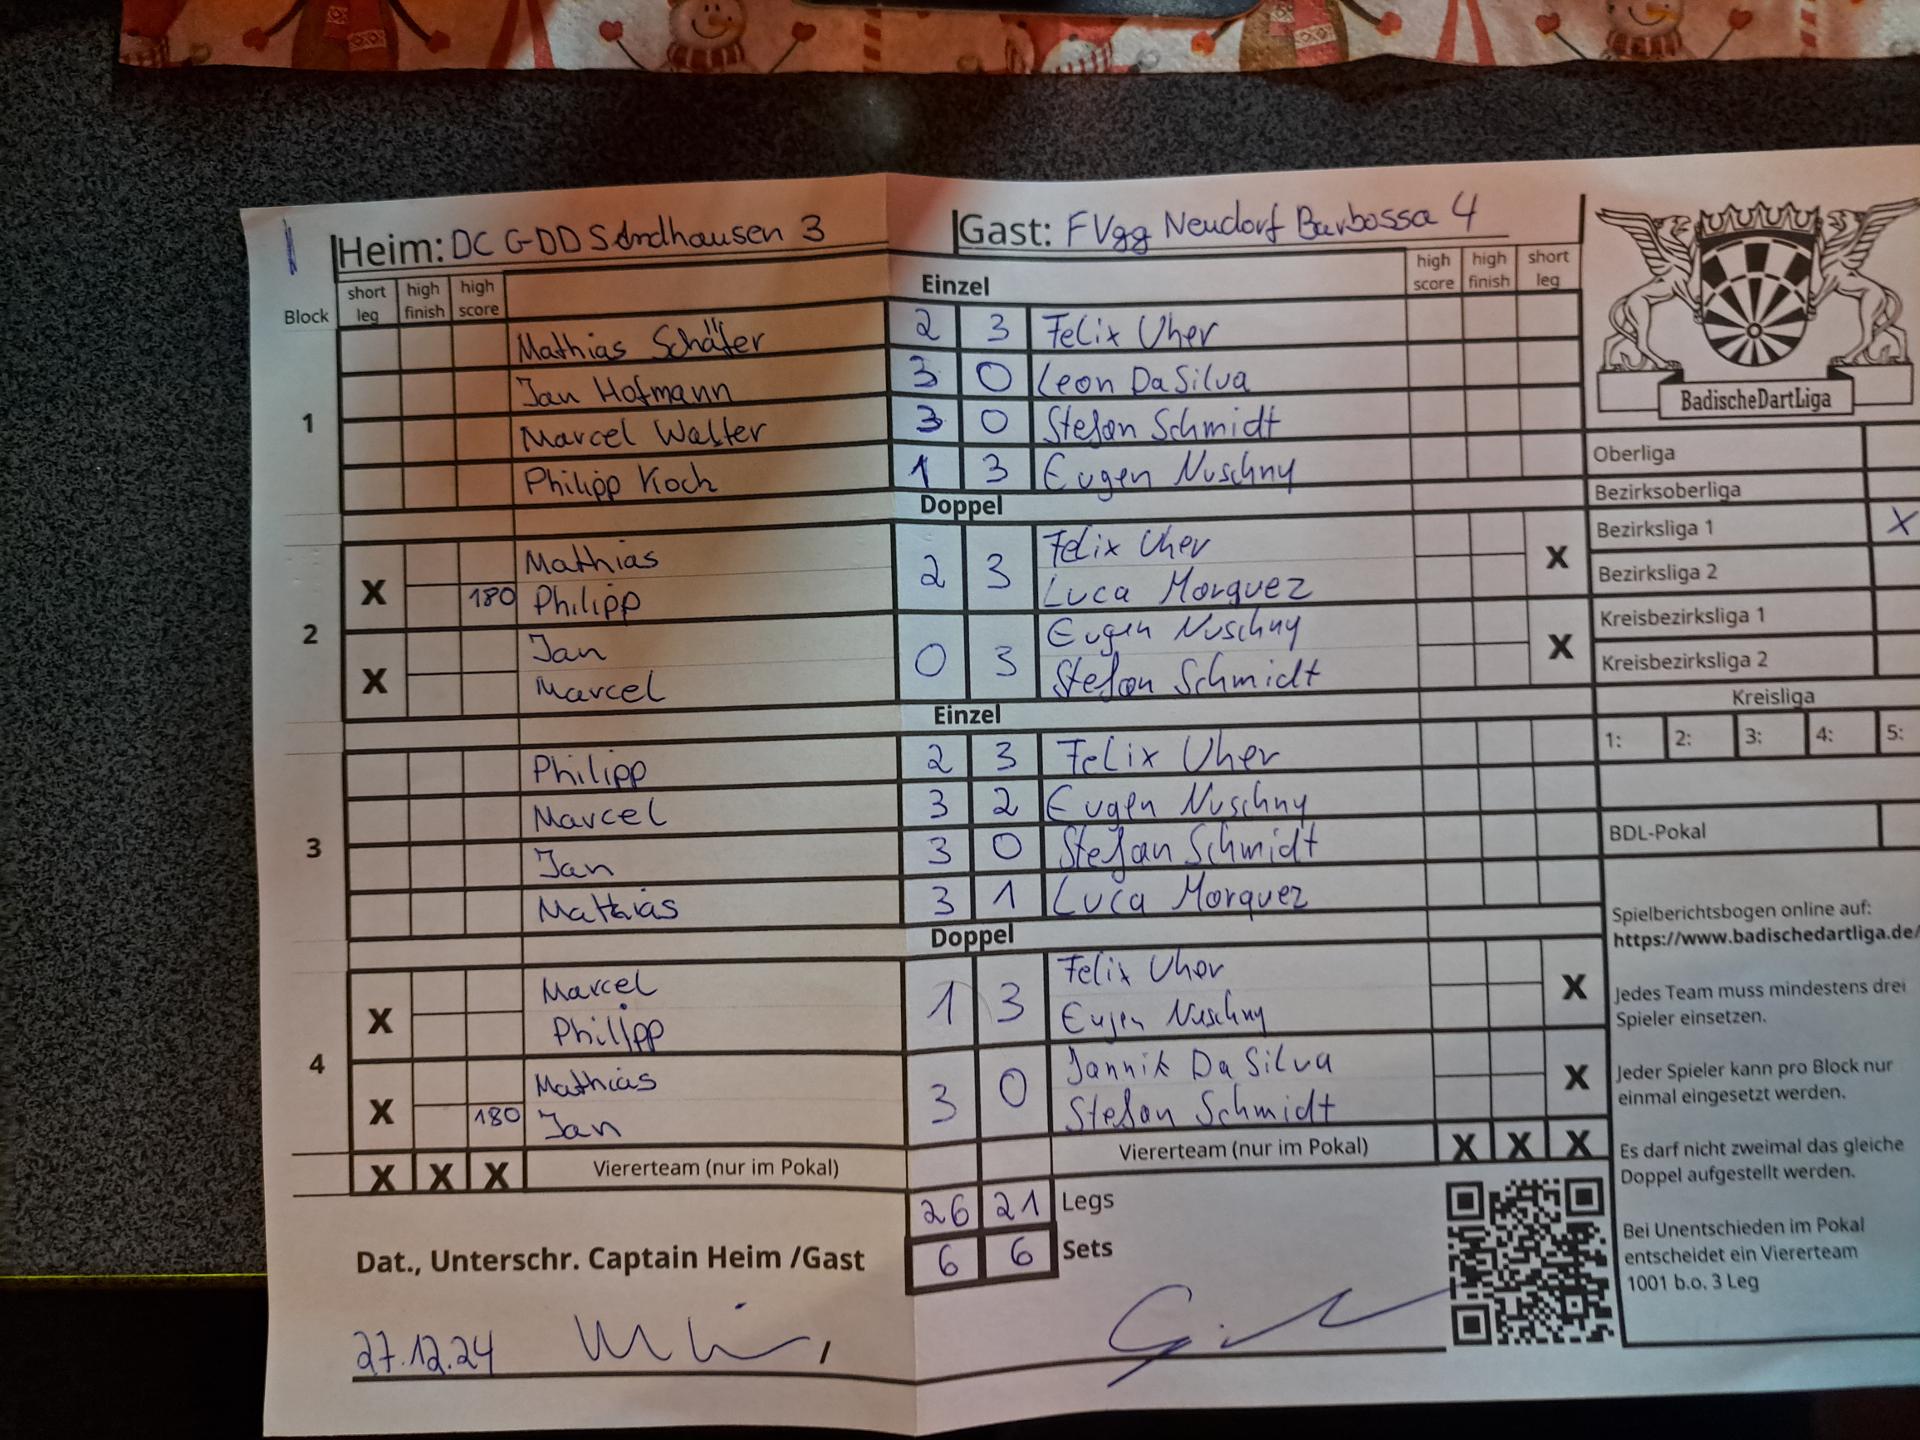 Heim: DC G-DD Sandhausen 3
Gast: FVgg Neudorf Barbossa 4
Block
short leg
high finish
high score
Einzel
high score
high finish
short leg
1
Mathias Schäfer 2 3 Felix Uher
Jan Hofmann 3 0 Leon DaSilva
Marcel Walter 3 0 Stefan Schmidt
Philipp Koch 1 3 Eugen Nuschny
Doppel
2
X Mathias 2 3 Felix Uher X
180 Philipp Luca Morquez
X Jan 0 3 Eugen Nuschny X
Marcel Stefan Schmidt
Einzel
3
Philipp 2 3 Felix Uher
Marcel 3 2 Eugen Nuschny
Jan 3 0 Stefan Schmidt
Mathias 3 1 Luca Morquez
Doppel
4
X Marcel 1 3 Felix Uher X
Philipp Eugen Nuschny
X Mathias 3 0 Jannik Da Silva X
180 Jan Stefan Schmidt
X X X Viererteam (nur im Pokal) Viererteam (nur im Pokal) X X X
26 21 Legs
6 6 Sets
Dat., Unterschr. Captain Heim /Gast
27.12.24
BadischeDartLiga
Oberliga
Bezirksoberliga
Bezirksliga 1 X
Bezirksliga 2
Kreisbezirksliga 1
Kreisbezirksliga 2
Kreisliga
1: 2: 3: 4: 5:
BDL-Pokal
Spielberichtsbogen online auf:
https://www.badischedartliga.de/
Jedes Team muss mindestens drei
Spieler einsetzen.
Jeder Spieler kann pro Block nur
einmal eingesetzt werden.
Es darf nicht zweimal das gleiche
Doppel aufgestellt werden.
Bei Unentschieden im Pokal
entscheidet ein Viererteam
1001 b.o. 3 Leg